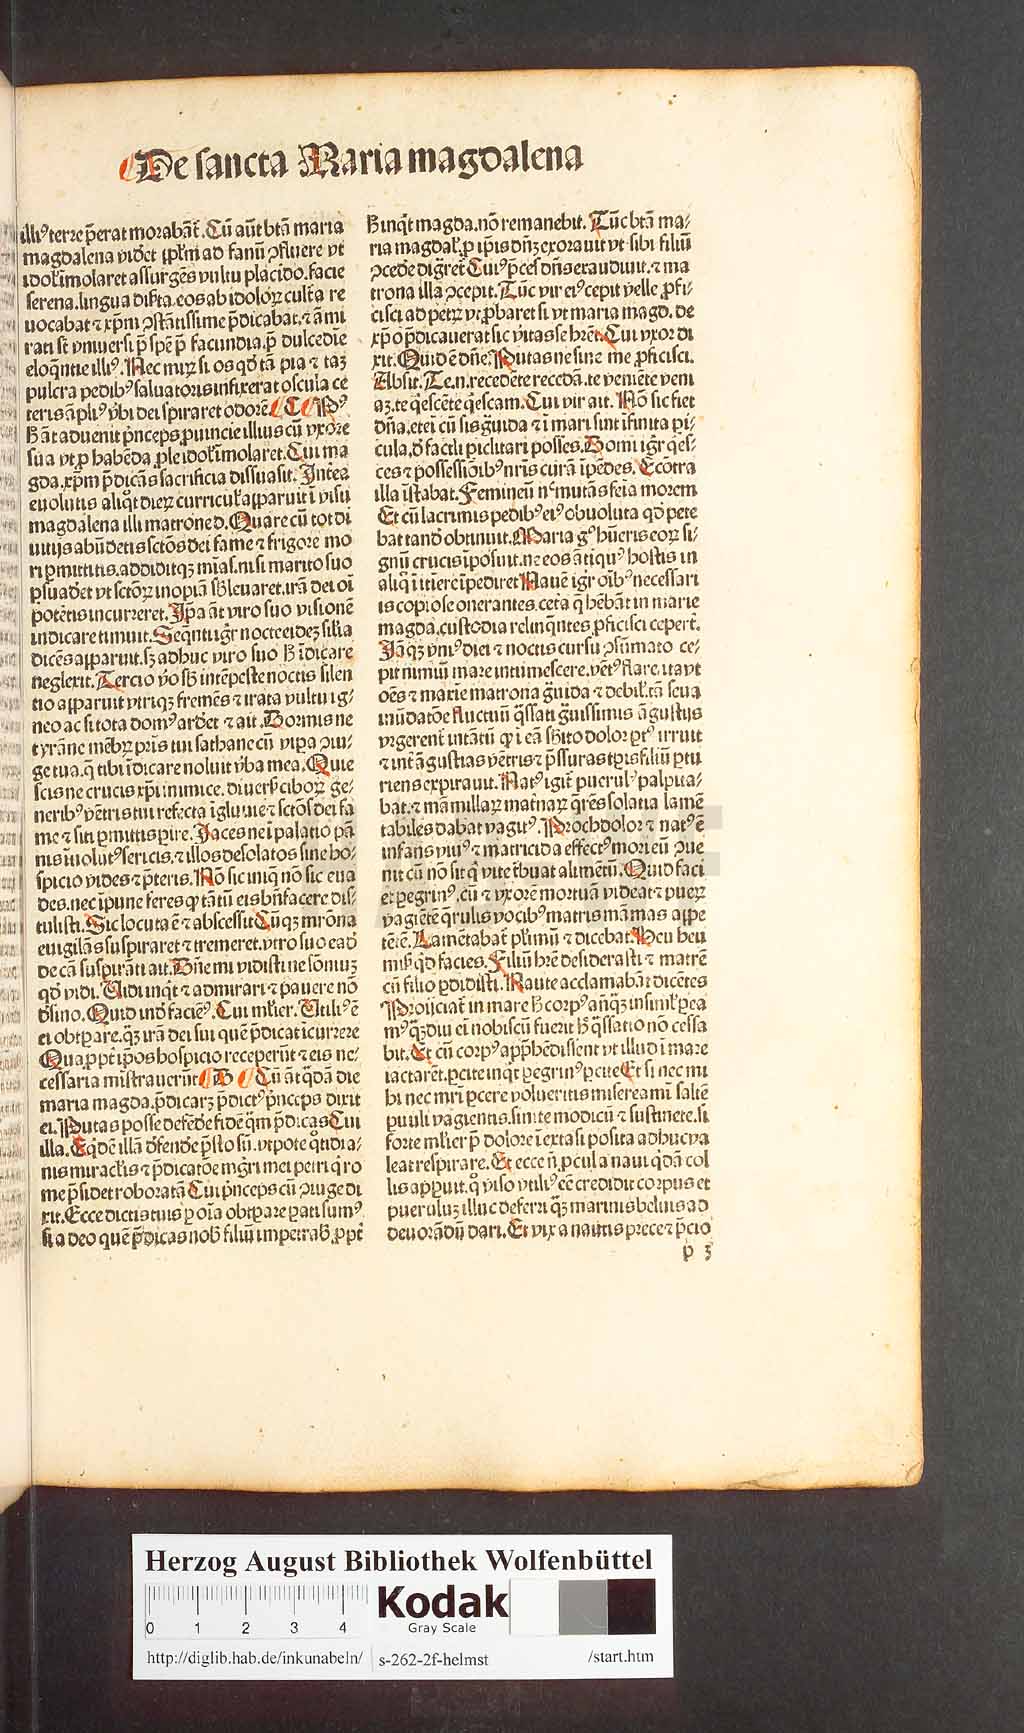 De sancta Maria magdalena
illiꝰ terre p̄erat morabāt᷑. Cū aūt btā maria
magdalena videt᷑ ipl̄m ad fanū ꝯfluere vt
idol̓ īmolaret assurgēs vultu placido. facie
serena. lingua diserta. eos ab idoloꝝ cult̄a re
uocabat ⁊ xp̄m ꝯstātissime p̄dicabat. ⁊ āmi
rati st̄ vniuersi p̄ spē p̄ facundia. p̄ dulcedīe
eloq̄ntie illiꝰ. Nec miꝝ si os qd̓ tā pia ⁊ taꝫ
pulcra pedibꝰ saluatoris infixerat oscula ce
teris āpliꝰ v̓bi dei spiraret odorē C Post
h̄ āt aduenit p̄nceps ꝓuincie illius cū vxore
sua vt ꝓ habēda ꝓle idol̓ īmolaret. Cui ma
gda. xp̄m p̄dicās sacrificia dissuasit. Interea
euolutis aliq̊t dieꝝ curricul̓ apparuit ī visu
magdalena illi matrone d. Quare cū tot di
uitijs abūdetis sctōs dei fame ⁊ frigore mo
ri ꝑmittitis. addiditqꝫ mīas. nisi marito suo
ꝑsuadet᷑ vt sctōꝝ inopiā sb̓leuaret. irā dei oī
potētis incurreret. Ip̄a āt viro suo visionē
indicare timuit. Seq̄nti igr̄ nocte eideꝫ sil̓ia
dicēs apparuit. sꝫ adhuc viro suo h̄ īdicare
neglexit. Tercio v̓o sb̓ intēpeste noctis silen
tio apparuit vtriqꝫ fremēs ⁊ irata vultu ig-
neo ac si tota domꝰ ardet᷑ ⁊ ait. Dormis ne
tyrāne mēbꝝ pr̄is tui sathane cū vipa ꝯiu-
ge tua. q̄ tibi īdicare noluit v̓ba mea. Quie
scis ne crucis xp̄i inimice. diuersꝰ ciboꝝ ge-
neribꝰ vētris tui refecta īgluuie ⁊ sctōs dei fa
me ⁊ siti ꝑmittis ꝑire. Iaces ne ī palatio pā
nis īuolutꝰ sericis. ⁊ illos desolatos sine ho-
spicio vides ⁊ p̄teris. Nō sic iniq̄ nō sic eua
des. nec īpune feres qꝫ tātū eis bn̄facere dis-
tulisti. Sic locuta ē ⁊ abscessit Cūqꝫ mr̄ōna
euigilās suspiraret ⁊ tremeret. viro suo ead̓
de cā suspirāti ait. Dn̄e mi vidisti ne sōniuꝫ
qd̓ vidi. Vidi inq̄t ⁊ admirari ⁊ pauere nō
d̓sino. Quid īnd̓ faciēꝰ. Cui ml̓ier. Vtiliꝰ ē
ei obtꝑare. qꝫ irā dei sui quē p̄dicat īcurrere
Quaꝓpt̓ ip̄os hospicio receperūt ⁊ eis ne-
cessaria mīstrauerūt D Cū āt q̄dā die
maria magda. p̄dicaꝝ p̄dictꝰ p̄nceps dixit
ei. Putas posse defēde᷑ fidē q̄m p̄dicas Cui
illa. Eq̄dē illā d̓fende᷑ p̄sto sū. vtpote q̊tidia-
nis miracl̓is ⁊ p̄dicatōe mgr̄i mei petri q̄ ro
me p̄sidet roboratā Cui p̄nceps cū ꝯiuge di
xit. Ecce dictis tuis ꝑ oīa obtꝑare ꝑati sumꝰ
si a deo quē p̄dicas nob̓ filiū impetrab̓. ꝓpt̓
h̄ inq̄t magda. nō remanebit. Tūc btā ma-
ria magdal̓. ꝓ ip̄is dn̄ꝫ exorauit vt sibi filiū
ꝯcede᷑ dig̓ret᷑ Cuiꝰ p̄ces dn̄s exaudiuit. ⁊ ma
trona illa ꝯcepit. Tūc vir eiꝰ cepit velle ꝓfi-
cisci ad petꝝ vt ꝓbaret si vt maria magd. de
xp̄o p̄dicauerat sic v̓itas se hr̄et. Cui vxor di
xit. Quid ē dn̄e. Putas ne sine me ꝓficisci.
Absit. Te. n. recedēte recedā. te veniēte veni
aꝫ. te q̄escēte q̄escam. Cui vir ait. Nō sic fiet
dn̄a. etei cū sis guida ⁊ ī mari sint īfinita ꝑi-
cula. d̓ facili ꝑiclitari posses. Domi igr̄ q̄es-
ces ⁊ possessiōibꝰ nr̄is curā īpēdes. Ecōtra
illa īstabat. Femineū nᶜ mutās feīa morem
Et cū lacrimis pedibꝰ eiꝰ obuoluta qd̓ pete
bat tand̓ obtinuit. Maria gᵒ hūeris eoꝝ si-
gnū crucis īposuit. ne eos ātiquꝰ hostis in
aliq̊ ītiere īpediret Nauē igr̄ oībꝰ necessari
is copiose onerantes. cet̓a q̄ hēbāt in marie
magda. custodia relinq̄ntes ꝓficisci ceperūt.
Iāqꝫ vniꝰ diei ⁊ noctis cursu ꝯsūmato ce-
pit nimiū mare intumescere. vētꝰ flare. ita vt
oēs ⁊ maxīe matrona gūida ⁊ debil̓. tā seua
inūdatōe fluctuū q̄ssati gūissimis āgustijs
vrgerent᷑ intātū qꝫ ī eā sb̓ito dolor ꝑtꝰ irruit
⁊ int̓ āgustias vētris ⁊ p̄ssuras tp̄is filiū ꝑtu
riens expirauit. Natꝰ igit᷑ puerulꝰ palpita-
bat. ⁊ māmillaꝝ mat̓naꝝ q̄rēs solatia lamē
tabiles dabat vagitꝰ. Proch dolor ⁊ natꝰ ē
infans viuꝰ ⁊ matricida effectꝰ mori eū ꝯue
nit cū nō sit q̄ vite t̓buat alimētū. Quid faci
et ꝑegrinꝰ. cū ⁊ vxorē mortuā videat ⁊ pueꝝ
vagiētē q̄rulis vocibꝰ matris māmas appe
tētē. Lamētabat᷑ plurimū ⁊ dicebat. Heu heu
mis̓ qd̓ facies. Filiū hr̄e desiderasti ⁊ matrē
cū filio ꝑdidisti. Naute acclamabāt dicētes
Proijciat᷑ in mare h̄ corpꝰ añqꝫ insimul ꝑea
mꝰ qꝫdiu ei nobiscū fuerit h̄ q̄ssatio nō cessa
bit. Et cū corpꝰ apphēdissent vt illud ī mare
iactarēt. ꝑcite inq̄t ꝑegrinꝰ ꝑcite Et si nec mi
hi nec mr̄i ꝑcere volueritis miseremī saltē
ꝑuuli vagientis. sinite modicū ⁊ sustinete. si
forte ml̓ier p̄ dolore ī extasi posita adhuc va
leat respirare. Et ecce ñ ꝓcul a naui q̄dā col
lis apꝑuit. q̊ viso vtiliꝰ eē credidit corpus et
pueruluꝫ illuc deferri q̄ꝫ marinis beluis ad
deuorādū dari. Et vix a nautis prece ⁊ p̄cio
p 3
Herzog August Bibliothek Wolfenbüttel
0 1 2 3 4
Kodak
Gray Scale
http://diglib.hab.de/inkunabeln/ s-262-2f-helmst /start.htm